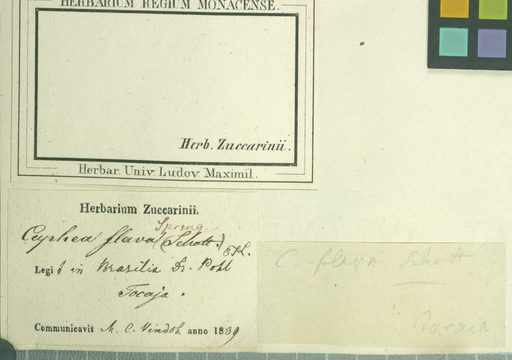 HERBARIUM REGIUM MONACENSE.
Herb. Zuccarinii.
Herbar. Univ. Ludov. Maximil.
Herbarium Zuccarinii.
Spreng.
Cuphea flava (Schott.)
Legit in Brasilia Dr. Pohl
Tocaja.
Communicavit M. C. Vindob. anno 1839
C. flava Schott
Tocaia